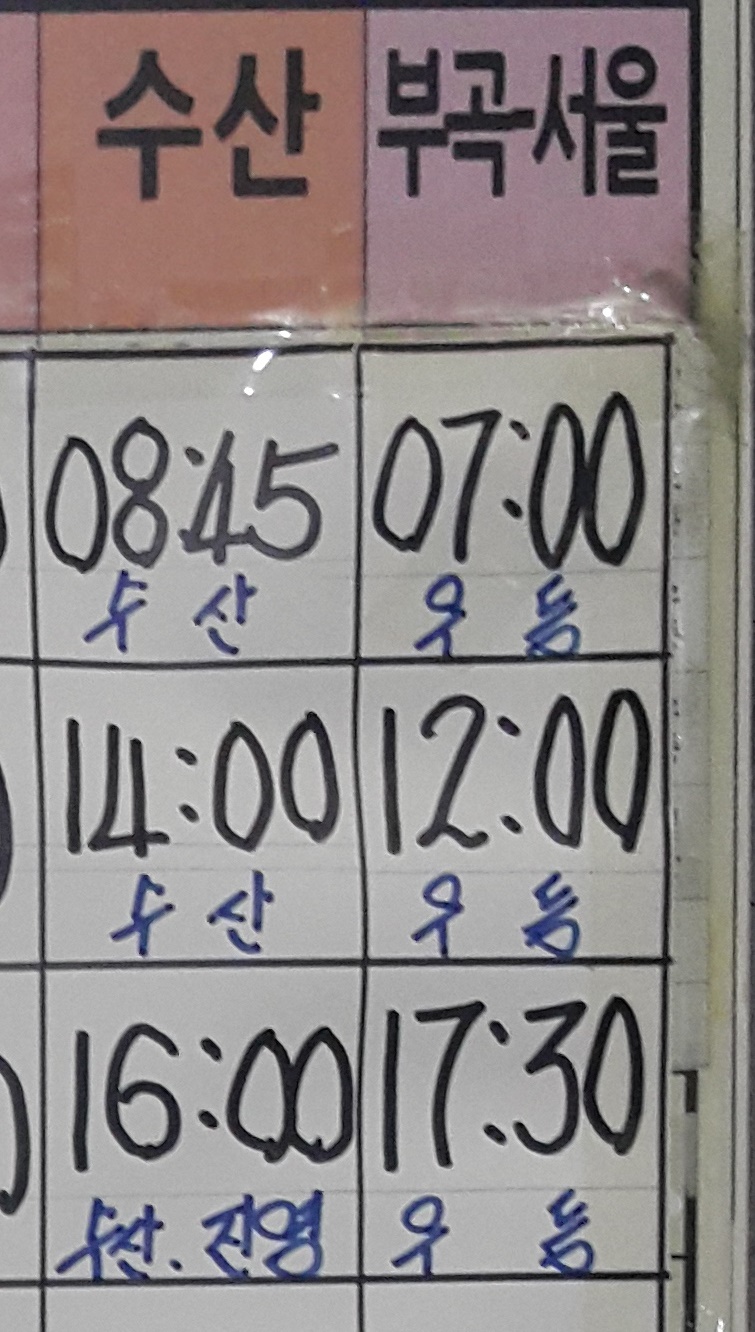 수산 부곡-서울
08:45 07:00
수산 우등
14:00 12:00
수산 우등
16:00 17:30
수산.진영 우등